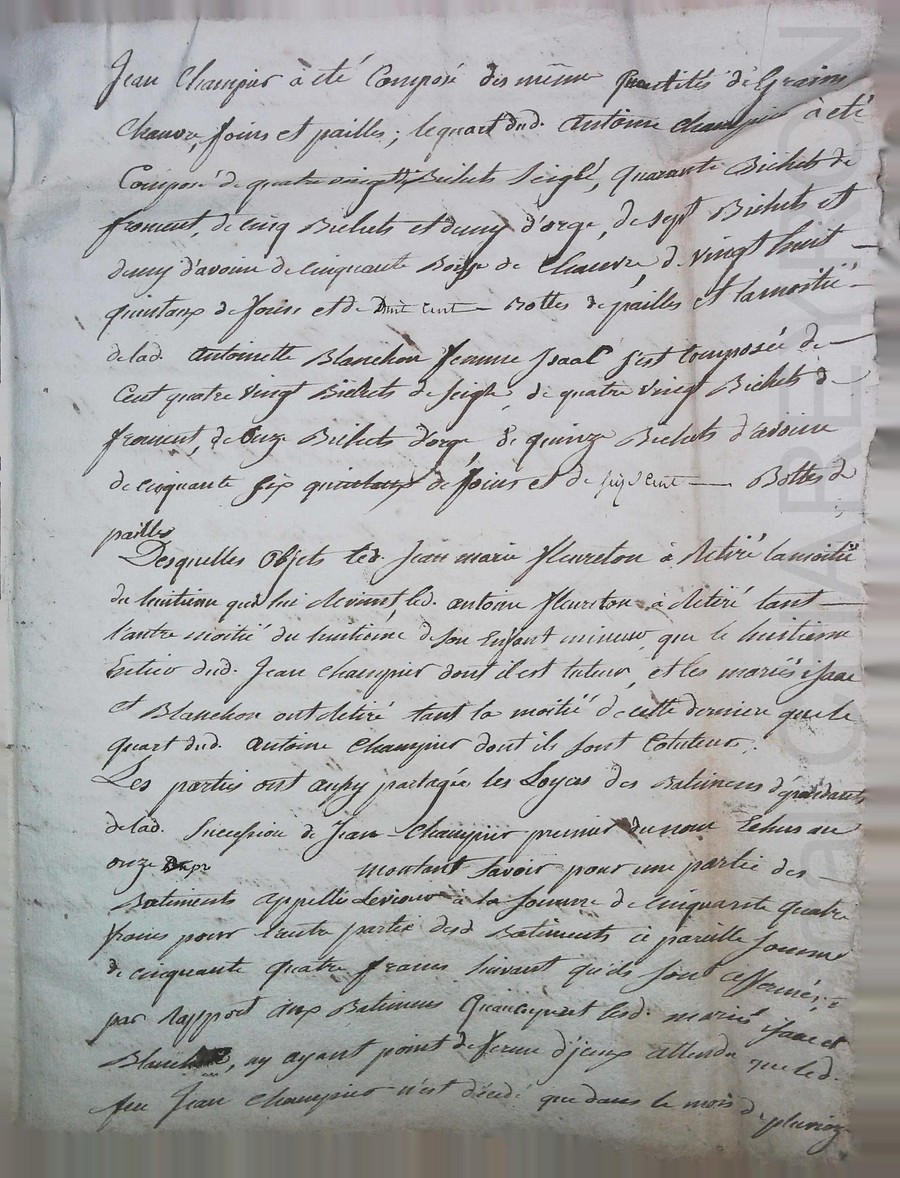 Jean Champier à eté Composé des même quantités de Grains
Chanvre, foins et pailles; le quart dud. antoine champier à eté
Composé de quatre vingt Bichets seigle, quarante Bichets de
froment, de cinq Bichets et demy d'orge, de sept Bichets et
demy d'avoine de cinquante de Chanvre, de vingt huit
quintaux de foins et de huit cent Bottes de pailles et la moitié
delad. antoinette Blanchon femme Isaac s'est composée de
Cent quatre vingt Bichets de seigle, de quatre vingt Bichets de
froment, de onze Bichets d'orge, de quinze Bichets d'avoine
de cinquante six quintaux de foins et de seize cent Bottes de
pailles
Desquelles objets led. Jean marie fleureton à Retiré la moitié
du huitieme qui lui Revient, led. antoine fleureton à Retiré tant
l'autre moitié du huitième de son Enfant mineur, que le huitieme
Entier dud. Jean Champier dont il est tuteur, et les mariés isaac
et Blanchon ont Retiré tant la moitié de cette derniere que le
quart dud. antoine Champier dont ils sont Cotuteurs.
Les parties ont aussy partagée les Loyers des Batimens dépendants
delad. succession de Jean Champier premier du nom Echus au
onze montant savoir pour une partie des
Batiments appellé à la somme de cinquante quatre
francs pour l'autre partie desd. Batiments à pareille somme
de cinquante quatre francs suivant qu'ils sont affermés; &
par rapport aux Batimens qu'occupent lesd. mariés isaac et
Blanchon, ny ayant point de ferme d'jeux attendu que led.
feu Jean Champier n'est décédé que dans le mois de pluvioze
GENEALOGIE CHAREYRON